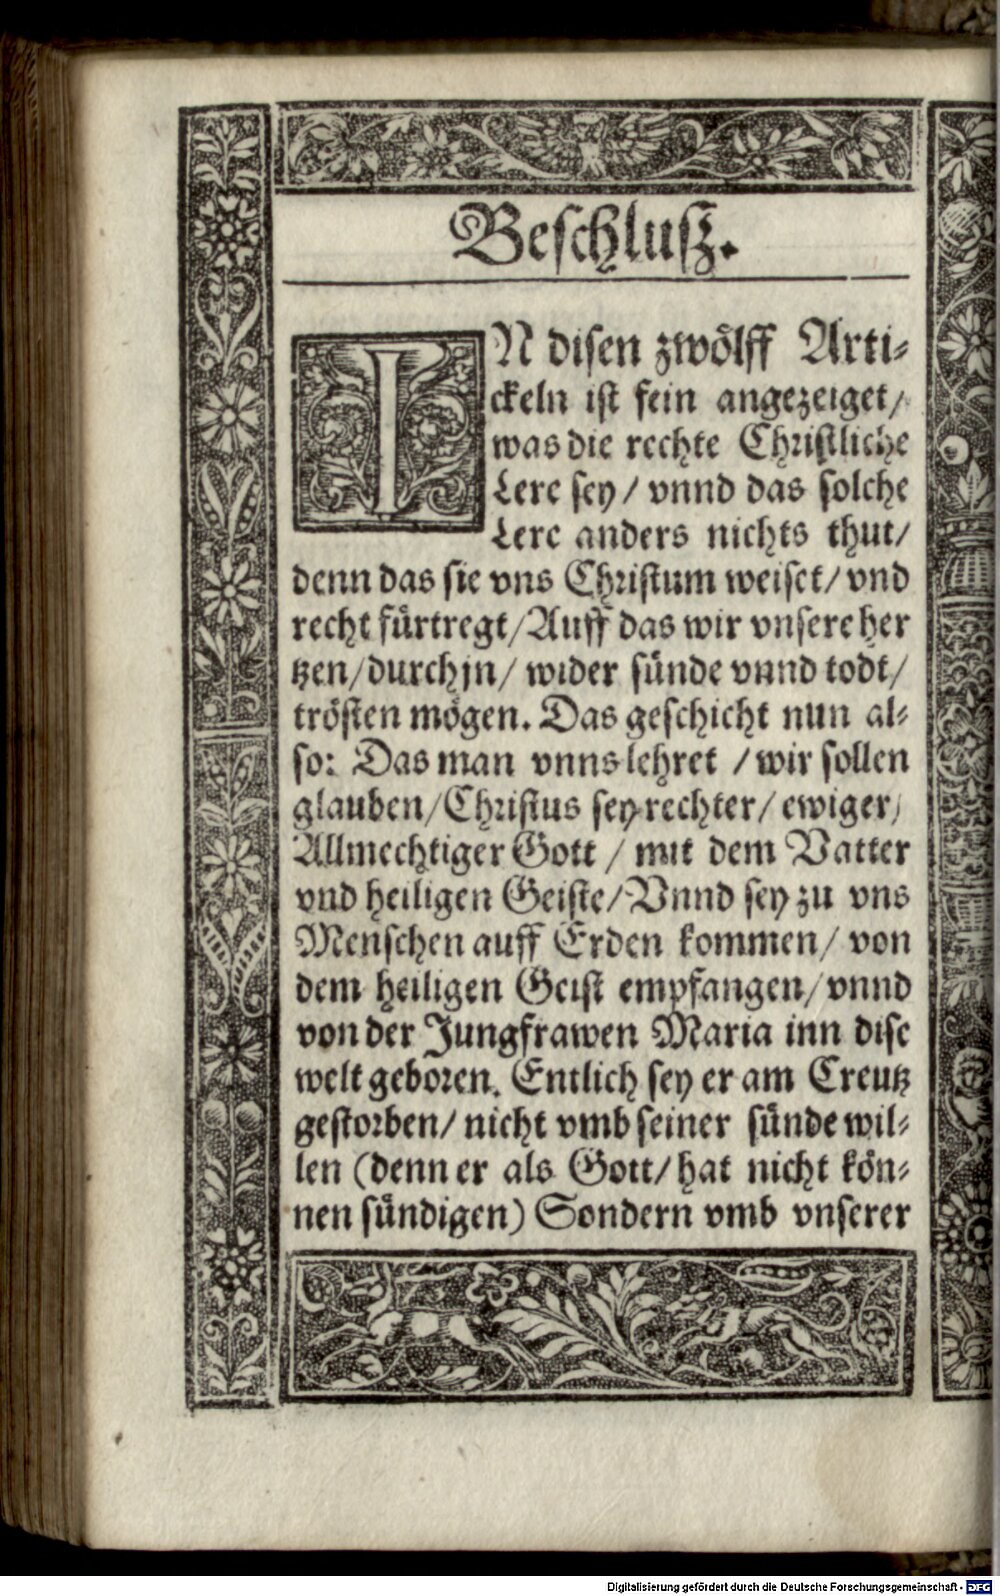 Beschlusz.
IN disen zwölff Arti-
ckeln ist fein angezeiget/
was die rechte Christliche
Lere sey / vnnd das solche
Lere anders nichts thut/
denn das sie vns Christum weiset/ vnd
recht fürtregt/ Auff das wir vnsere her
tzen/ durch jn/ wider sünde vnnd todt/
trösten mögen. Das geschicht nun al-
so: Das man vnns lehret / wir sollen
glauben/ Christus sey rechter/ ewiger/
Allmechtiger Gott / mit dem Vatter
vnd heiligen Geiste/ Vnnd sey zu vns
Menschen auff Erden kommen/ von
dem heiligen Geist empfangen/ vnnd
von der Jungfrawen Maria inn dise
welt geboren. Entlich sey er am Creutz
gestorben/ nicht vmb seiner sünde wil-
len (denn er als Gott/ hat nicht kön-
nen sündigen) Sondern vmb vnserer
Digitalisierung gefördert durch die Deutsche Forschungsgemeinschaft - DFG